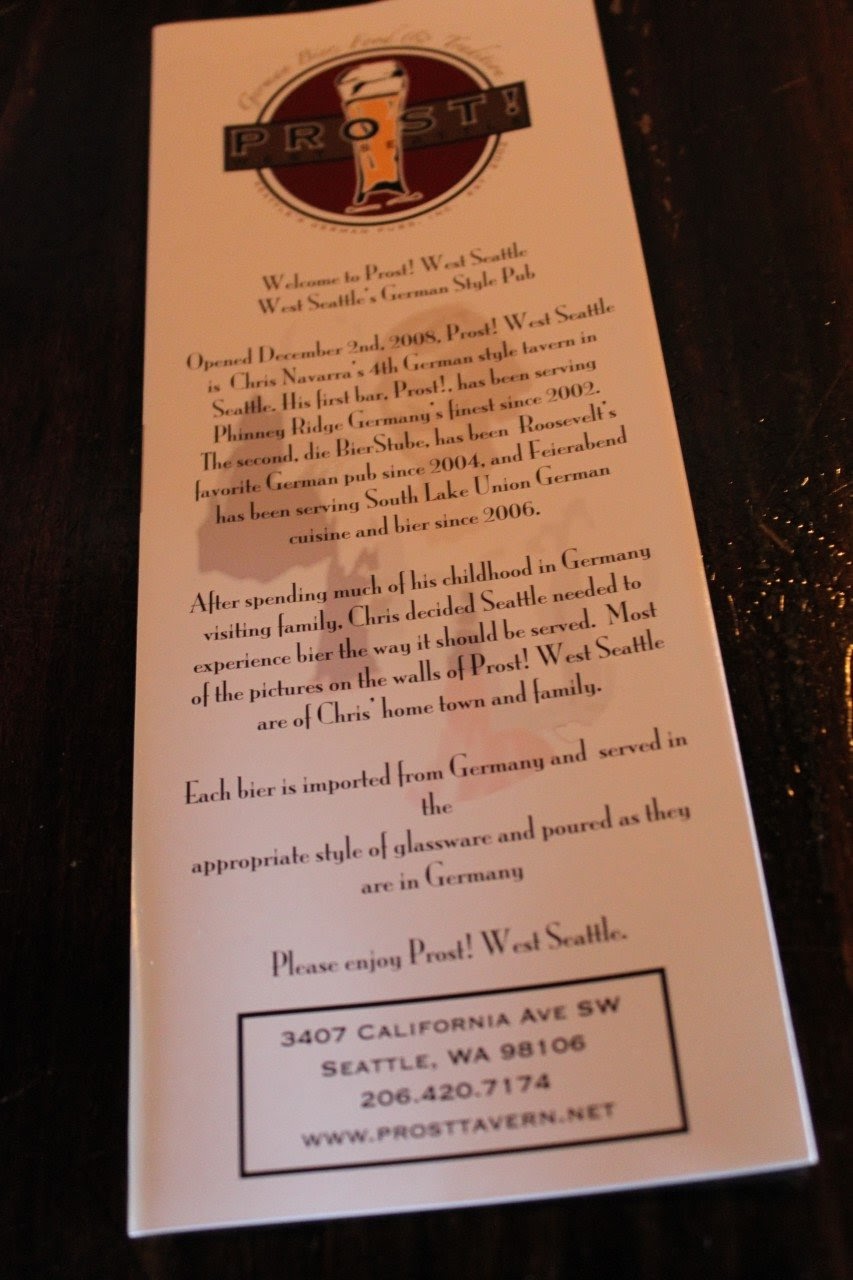 German Bier, Food & Tradition
PROST!
WEST SEATTLE
SEATTLE'S GERMAN PUBS, INC.
Welcome to Prost! West Seattle
West Seattle's German Style Pub
Opened December 2nd, 2008, Prost! West Seattle
is Chris Navarra's 4th German style tavern in
Seattle. His first bar, Prost!, has been serving
Phinney Ridge Germany's finest since 2002.
The second, die BierStube, has been Roosevelt's
favorite German pub since 2004, and Feierabend
has been serving South Lake Union German
cuisine and bier since 2006.
After spending much of his childhood in Germany
visiting family, Chris decided Seattle needed to
experience bier the way it should be served. Most
of the pictures on the walls of Prost! West Seattle
are of Chris' home town and family.
Each bier is imported from Germany and served in
the
appropriate style of glassware and poured as they
are in Germany
Please enjoy Prost! West Seattle.
3407 CALIFORNIA AVE SW
SEATTLE, WA 98106
206.420.7174
WWW.PROSTTAVERN.NET